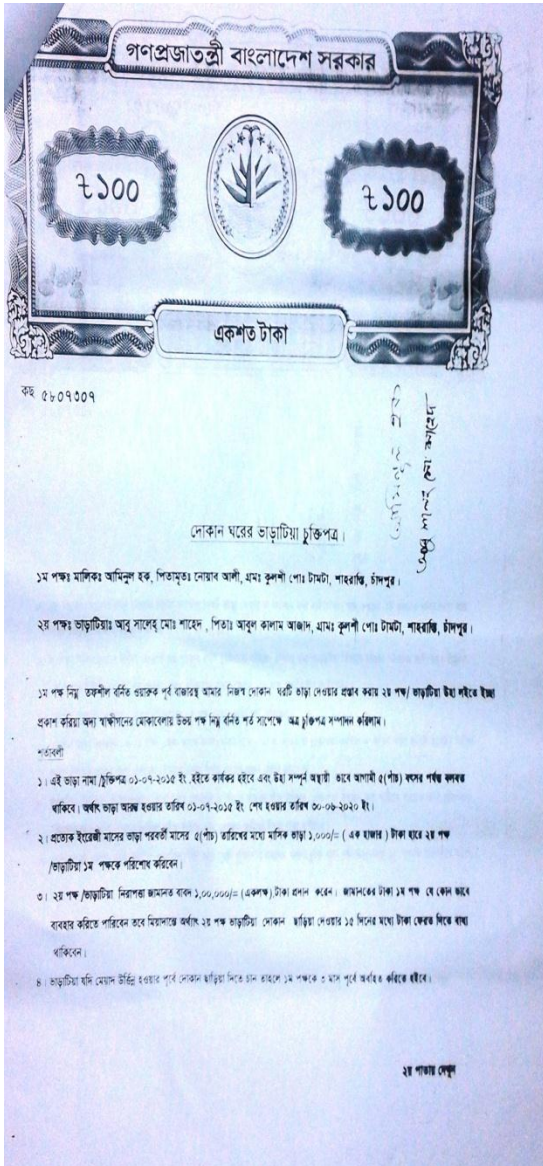 গণপ্রজাতন্ত্রী বাংলাদেশ সরকার
৳১০০
৳১০০
একশত টাকা
কছ ৫৮০৭৩০৭
দোকান ঘরের ভাড়াটিয়া চুক্তিপত্র।
১ম পক্ষঃ মালিকঃ আমিনুল হক, পিতামৃতঃ নোয়াব আলী, গ্রামঃ কুলশী পোঃ টামটা, শাহরাস্তি, চাঁদপুর।
২য় পক্ষঃ ভাড়াটিয়াঃ আবু সালেহ্ মোঃ শাহেদ , পিতাঃ আবুল কালাম আজাদ, গ্রামঃ কুলশী পোঃ টামটা, শাহরাস্তি, চাঁদপুর।
১ম পক্ষ নিম্ন তফশীল বর্নিত ওয়ারুক পূর্ব বাজারস্থ আমার নিজস্ব দোকান ঘরটি ভাড়া দেওয়ার প্রস্তাব করায় ২য় পক্ষ/ ভাড়াটিয়া উহা লইতে ইচ্ছা
প্রকাশ করিয়া অদ্য স্বাক্ষীগনের মোকাবেলায় উভয় পক্ষ নিম্ন বর্নিত শর্ত সাপেক্ষে অত্র চুক্তিপত্র সম্পাদন করিলাম।
শর্তাবলী
১। এই ভাড়া নামা /চুক্তিপত্র ০১-০৭-২০১৫ ইং হইতে কার্যকর হইবে এবং উহা সম্পূর্ন অস্থায়ী ভাবে আগামী ৫(পাঁচ) বৎসর পর্যন্ত বলবত
থাকিবে। অর্থাৎ ভাড়া আরম্ভ হওয়ার তারিখ ০১-০৭-২০১৫ ইং শেষ হওয়ার তারিখ ৩০-০৬-২০২০ ইং।
২। প্রত্যেক ইংরেজী মাসের ভাড়া পরবর্তী মাসের ৫(পাঁচ) তারিখের মধ্যে মাসিক ভাড়া ১,০০০/= ( এক হাজার ) টাকা হারে ২য় পক্ষ
/ভাড়াটিয়া ১ম পক্ষকে পরিশোধ করিবেন।
৩। ২য় পক্ষ /ভাড়াটিয়া নিরাপত্তা জামানত বাবদ ১,০০,০০০/= (একলক্ষ) টাকা প্রদান করেন। জামানতের টাকা ১ম পক্ষ যে কোন ভাবে
ব্যবহার করিতে পারিবেন তবে মিয়াদান্তে অর্থাৎ ২য় পক্ষ ভাড়াটিয়া দোকান ছাড়িয়া দেওয়ার ১৫ দিনের মধ্যে টাকা ফেরত দিতে বাধ্য
থাকিবেন।
৪। ভাড়াটিয়া যদি মেয়াদ উর্ত্তিন্ন হওয়ার পূর্বে দোকান ছাড়িয়া দিতে চান তাহলে ১ম পক্ষকে ৩ মাস পূর্বে অবহিত করিতে হইবে।
২য় পাতায় দেখুন